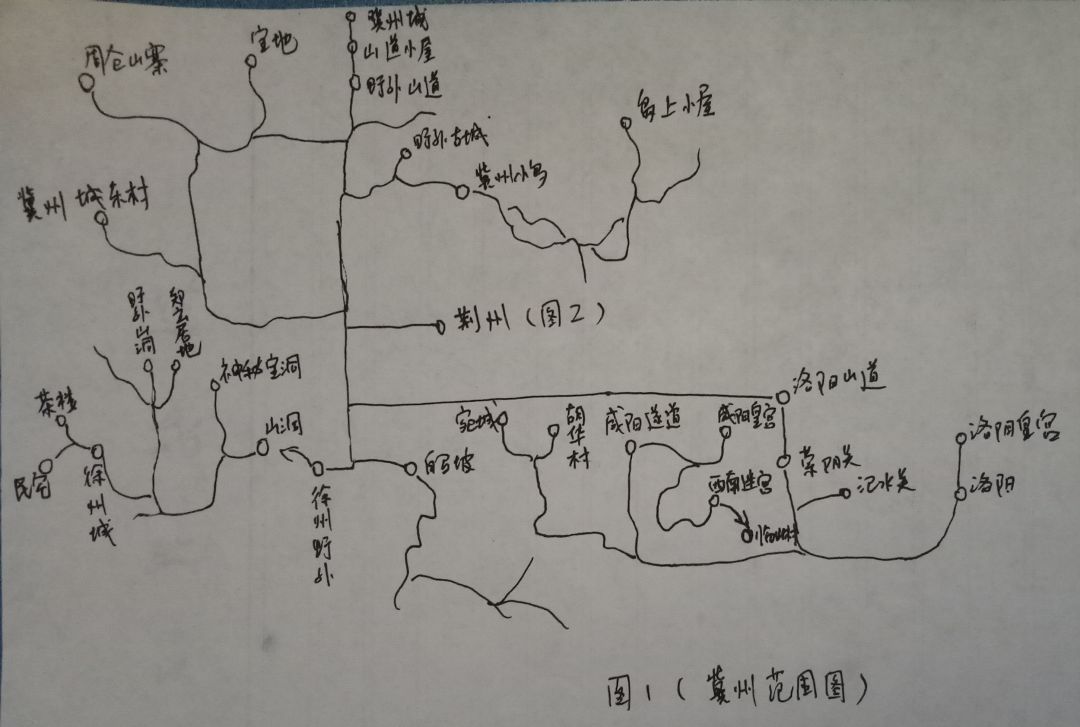 冀州城
山道小屋
野外山道
宝地
周仓山寨
野外古城
冀州小岛
岛上小屋
冀州城东村
荆州（图2）
野外山洞
郑玄居地
神秘宝洞
茶楼
民宅
徐州城
山洞
徐州野外
白马坡
宛城
胡华村
咸阳遂道
咸阳皇宫
西南迷宫
洛阳山道
荥阴关
汜水关
洛阳皇宫
洛阳
图1（冀州范围图）